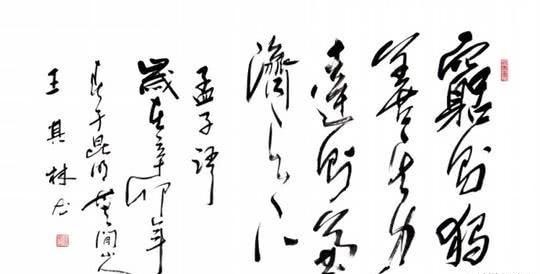 窮則獨
善其身
達則兼
濟天下
孟子语
歲在辛卯年
春于昆明
王其林书